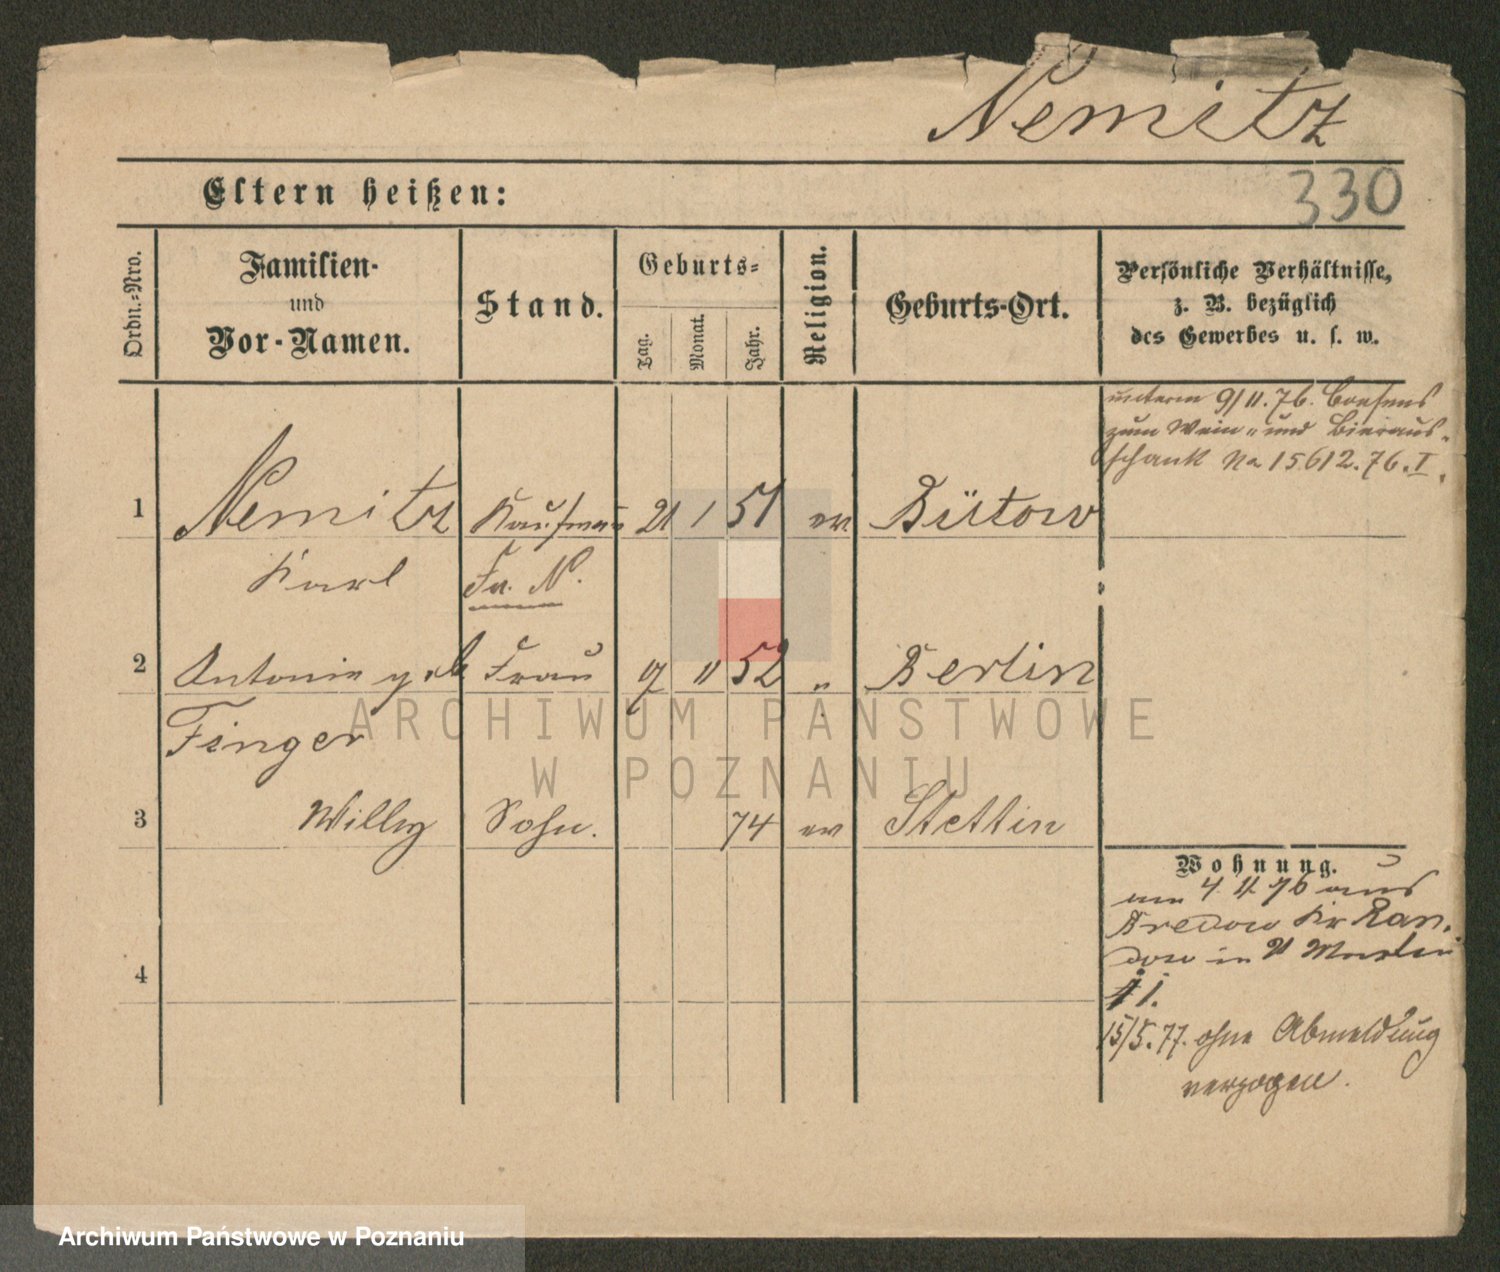 Nemitz
Eltern heißen:
330
Ordn.-Nro.
Familien-
und
Vor-Namen.
Stand.
Geburts-
Tag.
Monat.
Jahr.
Religion.
Geburts-Ort.
Persönliche Verhältnisse,
z. B. bezüglich
des Gewerbes u. s. w.
unterm 9/11.76. Consens
zum Wein- und Bieraus-
schank No 15612.76.I.
1 Nemitz Kaufmann 21 1 51 ev Bütow
Karl Fa. N.
2 Antonie geb Frau 9 11 52 " Berlin
Finger
3 Willy Sohn. 74 ev Stettin
Wohnung.
4. 11. 76 aus
Bredow Kr Ran-
dow in
4
1.
15/5.77. ohne Abmeldung
verzogen.
ARCHIWUM PAŃSTWOWE
W POZNANIU
Archiwum Państwowe w Poznaniu